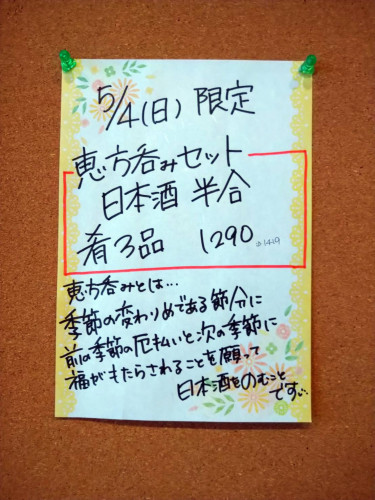 5/4(日) 限定
恵方呑みセット
日本酒 半合
肴3品 1290 込1419
恵方呑みとは…
季節の変わりめである節分に
前の季節の厄払いと次の季節に
福がもたらされることを願って
日本酒をのむこと
です。